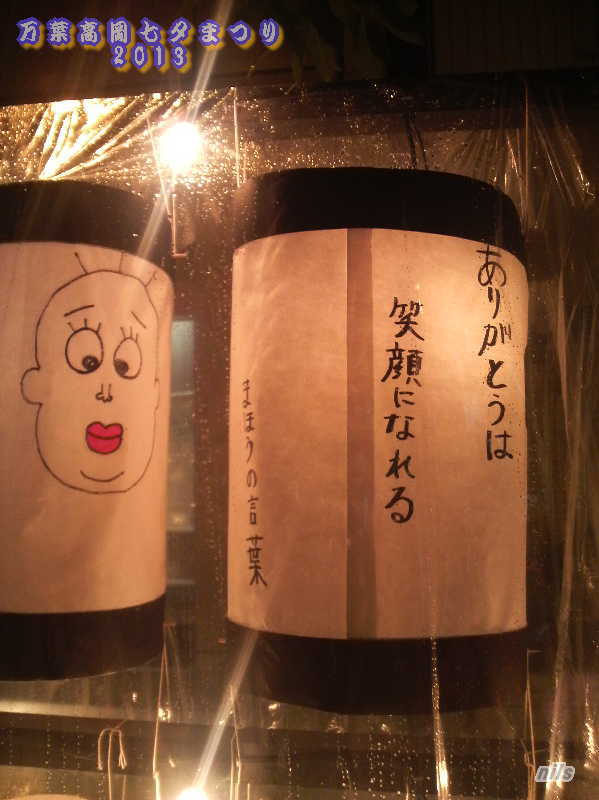 万葉高岡七夕まつり
2013
ありがとうは
笑顔になれる
まほうの言葉
nils